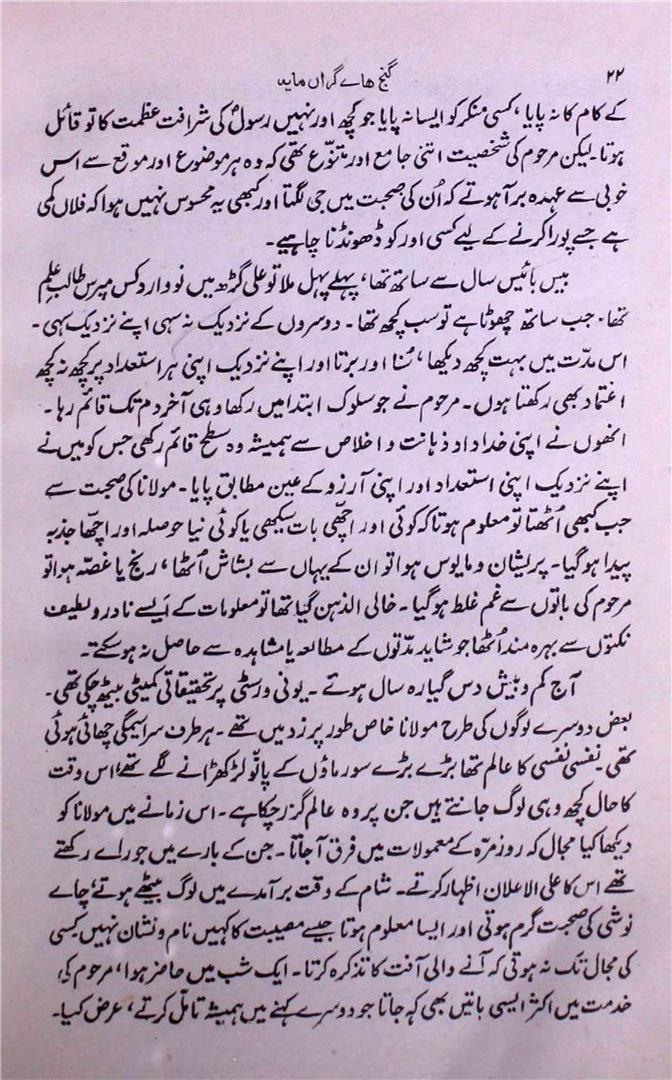 ۲۲ گنج ھاے گراں مایہ
کے کام کا نہ پایا، کسی منکر کو ایسا نہ پایا جو کچھ اور نہیں رسولؐ کی شرافت عظمت کا تو قائل
ہوتا۔ لیکن مرحوم کی شخصیت اتنی جامع اور متنوّع تھی کہ وہ ہر موضوع اور موقع سے اس
خوبی سے عہدہ برآ ہوتے کہ اُن کی صحبت میں جی لگتا اور کبھی یہ محسوس نہیں ہوا کہ فلاں کمی
ہے جسے پورا کرنے کے لیے کسی اور کو ڈھونڈنا چاہیے۔
بیس بائیس سال سے ساتھ تھا، پہلے پہل ملا تو علی گڑھ میں نووارد کس مپرس طالب علم
تھا۔ جب ساتھ چھوٹا ہے تو سب کچھ تھا۔ دوسروں کے نزدیک نہ سہی اپنے نزدیک سہی۔
اس مدّت میں بہت کچھ دیکھا، سُنا اور برتا اور اپنے نزدیک اپنی ہر استعداد پر کچھ نہ کچھ
اعتماد بھی رکھتا ہوں۔ مرحوم نے جو سلوک ابتدا میں رکھا وہی آخر دم تک قائم رہا۔
انھوں نے اپنی خداداد ذہانت و اخلاص سے ہمیشہ وہ سطح قائم رکھی جس کو میں نے
اپنے نزدیک اپنی استعداد اور اپنی آرزو کے عین مطابق پایا۔ مولانا کی صحبت سے
جب کبھی اُٹھتا تو معلوم ہوتا کہ کوئی اور اچھّی بات سیکھی یا کوئی نیا حوصلہ اور اچھّا جذبہ
پیدا ہو گیا۔ پریشان و مایوس ہوا تو ان کے یہاں سے بشاش اُٹھا، رنج یا غصّہ ہوا تو
مرحوم کی باتوں سے غم غلط ہو گیا۔ خالی الذہن گیا تھا تو معلومات کے اَیسے نادر و لطیف
نکتوں سے بہرہ مند اُٹھا جو شاید مدّتوں کے مطالعہ یا مشاہدہ سے حاصل نہ ہو سکتے۔
آج کم و بیش دس گیارہ سال ہوئے۔ یونی ورسٹی پر تحقیقاتی کمیٹی بیٹھ چکی تھی۔
بعض دوسرے لوگوں کی طرح مولانا خاص طور پر زد میں تھے۔ ہر طرف سراسیمگی چھائی ہوئی
تھی۔ نفسی نفسی کا عالم تھا بڑے بڑے سورماؤں کے پانّو لڑکھڑانے لگے تھے، اس وقت
کا حال کچھ وہی لوگ جانتے ہیں جن پر وہ عالم گزر چکا ہے۔ اس زمانے میں مولانا کو
دیکھا کیا مجال کہ روزمرّہ کے معمولات میں فرق آ جاتا۔ جن کے بارے میں جو راے رکھتے
تھے اس کا علی الاعلان اظہار کرتے۔ شام کے وقت برآمدے میں لوگ بیٹھے ہوتے، چاے
نوشی کی صحبت گرم ہوتی اور ایسا معلوم ہوتا جیسے مصیبت کا کہیں نام و نشان نہیں کسی
کی مجال تک نہ ہوتی کہ آنے والی آفت کا تذکرہ کرتا۔ ایک شب میں حاضر ہوا، مرحوم کی
خدمت میں اکثر ایسی باتیں بھی کہہ جاتا جو دوسرے کہنے میں ہمیشہ تامّل کرتے، عرض کیا۔